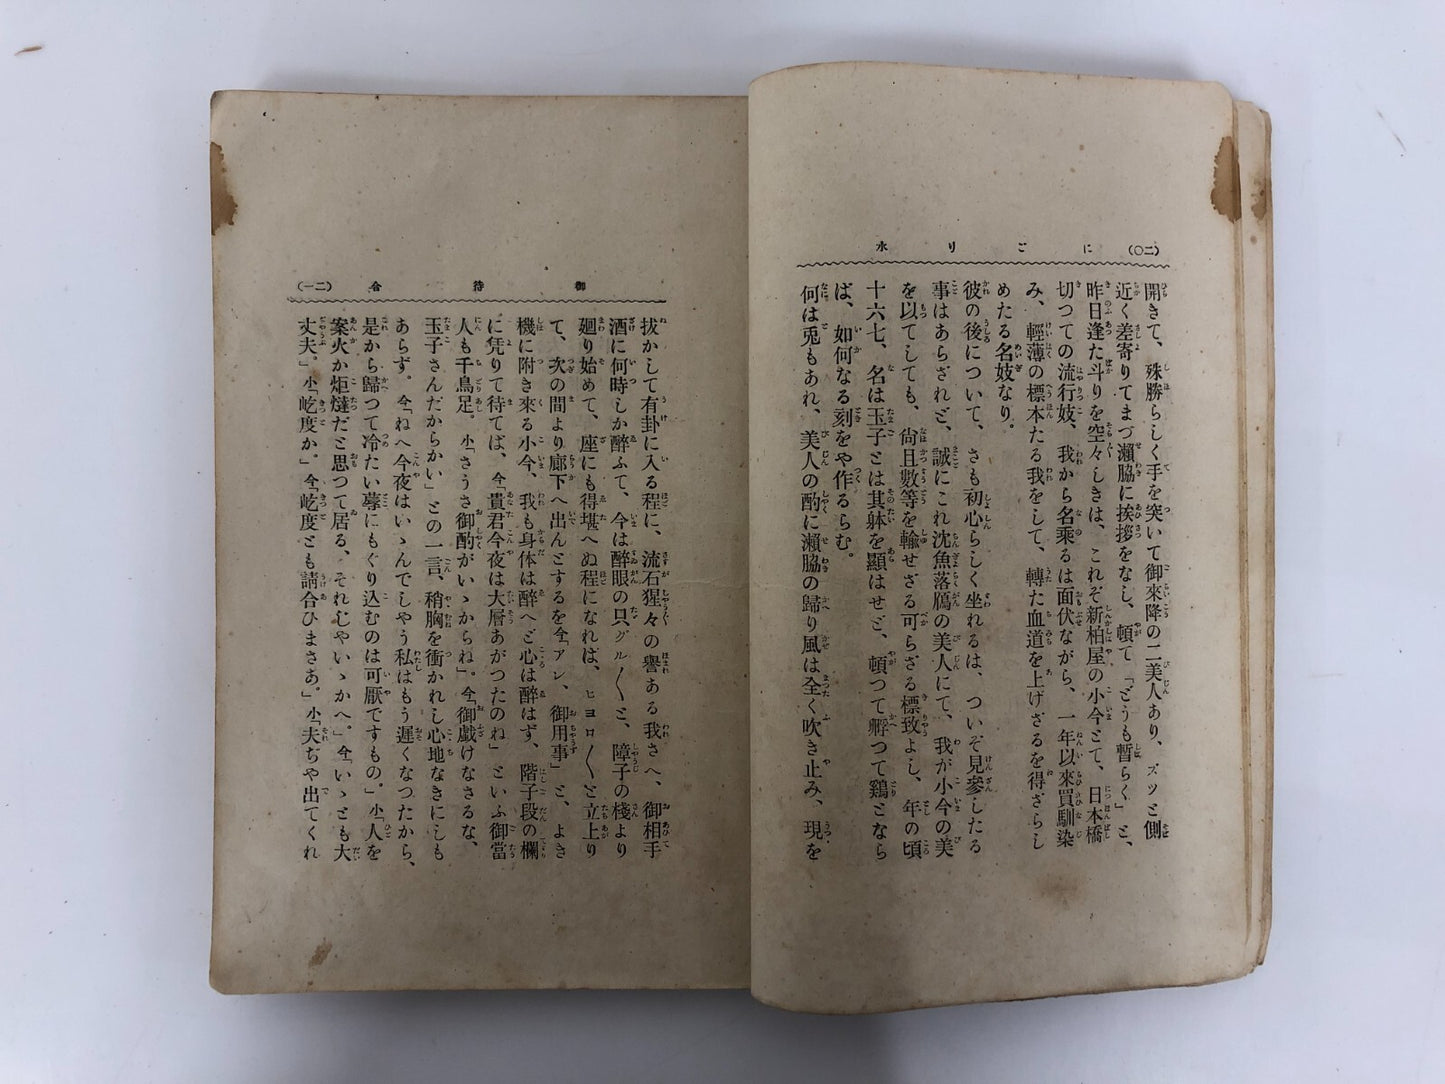 (二〇) にごり水
開きて、殊勝らしく手を突いて御來降の二美人あり、ズツと側
近く差寄りてまづ瀨脇に挨拶をなし、頓て「どうも暫らく」と、
昨日逢た斗りを空々しきは、これぞ新柏屋の小今とて、日本橋
切つての流行妓、我から名乘るは面伏ながら、一年以來買馴染
み、輕薄の標本たる我をして、轉た血道を上げざるを得ざらし
めたる名妓なり。
彼の後について、さも初心らしく坐れるは、ついぞ見參したる
事はあらざれど、誠にこれ沈魚落鴈の美人にて、我が小今の美
を以てしても、尙且數等を輸せざる可らざる標致よし、年の頃
十六七、名は玉子とは其躰を顯はせど、頓つて孵つて鷄となら
ば、如何なる刻をや作るらむ。
何は兎もあれ、美人の酌に瀨脇の歸り風は全く吹き止み、現を
御待合 (二一)
拔かして有卦に入る程に、流石猩々の譽ある我さへ、御相手
酒に何時しか醉ふて、今は醉眼の只グル〱と、障子の棧より
廻り始めて、座にも得堪へぬ程になれば、ヒヨロ〱と立上り
て、次の間より廊下へ出んとするを今「アン、御用事」と、よき
機に附き來る小今、我も身体は醉へど心は醉はず、階子段の欄
に凭りて待てば、今「貴君今夜は大層あがつたのね」といふ御當
人も千鳥足。小「さうさ御酌がいゝからね」。今「御戲けなさるな、
玉子さんだからかい」との一言、稍胸を衝かれし心地なきにしも
あらず。今「ねへ今夜はいゝんでしやう私はもう遲くなつたから、
是から歸つて冷たい蓐にもぐり込むのは可厭ですもの」。小「人を
案火か炬燵だと思つて居る、それむやいゝかへ」。今「いゝとも大
丈夫」。小「屹度か」。今「屹度とも請合ひまさあ」。小「夫ぢや出てくれ